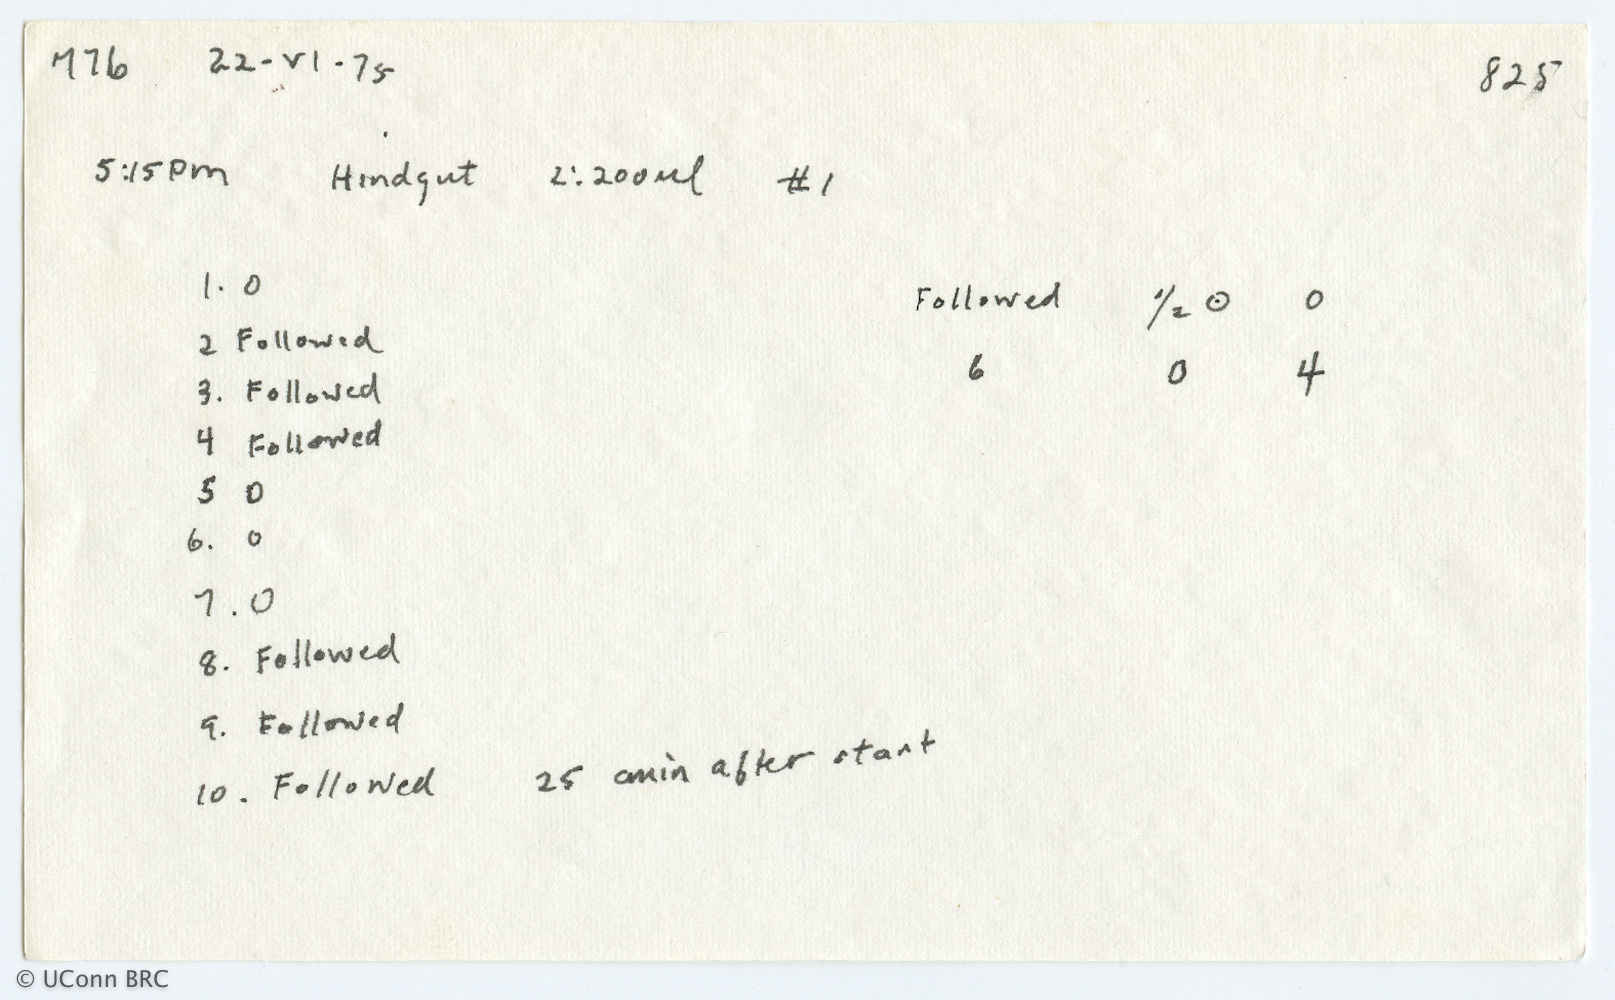 M76 22-VI-75 825
5:15 Pm Hindgut 2:200ul #1
1. 0
2 Followed
3. Followed
4 Followed
5 0
6. 0
7. 0
8. Followed
9. Followed
10. Followed 25 min after start
Followed 1/2 0 0
6 0 4
© UConn BRC